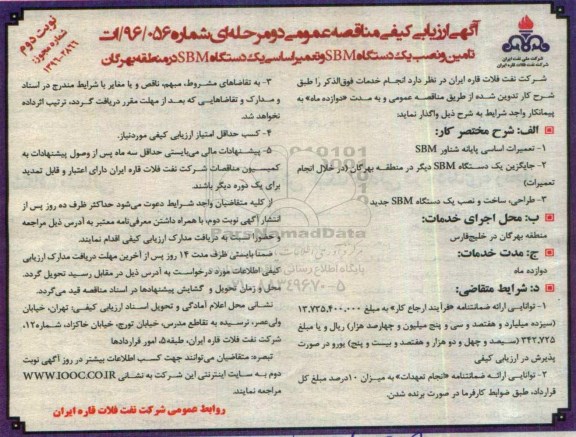 نوبت دوم
شماره مجوز: ۱۳۹۶-۲۸۶۶
آگهی ارزیابی کیفی مناقصه عمومی دو مرحله‌ای شماره ۹۶/۰۵۶/ات
تامین و نصب یک دستگاه SBM و تعمیر اساسی یک دستگاه SBM در منطقه بهرگان
شرکت ملی نفت ایران
شرکت نفت فلات قاره ایران
شرکت نفت فلات قاره ایران در نظر دارد انجام خدمات فوق‌الذکر را طبق
شرح کار تدوین شده از طریق مناقصه عمومی و به مدت «دوازده ماه» به
پیمانکار واجد شرایط به شرح ذیل واگذار نماید:
الف: شرح مختصر کار:
۱- تعمیرات اساسی پایانه شناور SBM
۲- جایگزین یک دستگاه SBM دیگر در منطقه بهرگان (در خلال انجام
تعمیرات)
۳- طراحی، ساخت و نصب یک دستگاه SBM جدید
ب: محل اجرای خدمات:
منطقه بهرگان در خلیج‌فارس
ج: مدت خدمات:
دوازده ماه
د: شرایط متقاضی:
۱- توانایی ارائه ضمانتنامه «فرآیند ارجاع کار» به مبلغ ۱۳.۷۳۵.۴۰۰.۰۰۰
(سیزده میلیارد و هفتصد و سی و پنج میلیون و چهارصد هزار) ریال و یا مبلغ
۳۴۲.۷۲۵ (سیصد و چهل و دو هزار و هفتصد و بیست و پنج) یورو در صورت
پذیرش در ارزیابی کیفی
۲- توانایی ارائه ضمانتنامه «انجام تعهدات» به میزان ۱۰درصد مبلغ کل
قرارداد، طبق ضوابط کارفرما در صورت برنده شدن.
۳- به تقاضاهای مشروط، مبهم، ناقص و یا مغایر با شرایط مندرج در اسناد
و مدارک و تقاضاهایی که بعد از مهلت مقرر دریافت گردد، ترتیب اثرداده
نخواهد شد.
۴- کسب حداقل امتیاز ارزیابی کیفی موردنیاز.
۵- پیشنهادات مالی می‌بایستی حداقل سه ماه پس از وصول پیشنهادات به
کمیسیون مناقصات شرکت نفت فلات قاره ایران دارای اعتبار و قابل تمدید
برای یک دوره دیگر باشند.
از کلیه متقاضیان واجد شرایط دعوت می‌شود حداکثر ظرف ده روز پس از
انتشار آگهی نوبت دوم، با همراه داشتن معرفی‌نامه معتبر به آدرس ذیل مراجعه
و حضوراً نسبت به دریافت مدارک ارزیابی کیفی اقدام نمایند.
ضمنا بایستی ظرف مدت ۱۴ روز پس از آخرین مهلت دریافت مدارک ارزیابی
کیفی اطلاعات مورد درخواست به آدرس ذیل در مقابل رسید تحویل گردد.
محل و زمان تحویل و گشایش پیشنهادها در اسناد مناقصه قید می‌گردد.
نشانی محل اعلام آمادگی و تحویل اسناد ارزیابی کیفی: تهران، خیابان
ولی‌عصر، نرسیده به تقاطع مدرس، خیابان تورج، خیابان خاکزاد، شماره۱۲،
شرکت نفت فلات قاره ایران، طبقه۵، امور قراردادها
تبصره: متقاضیان می‌توانند جهت کسب اطلاعات بیشتر در روز آگهی نوبت
دوم به سایت اینترنتی این شرکت به نشانی WWW.IOOC.CO.IR
مراجعه نمایند.
روابط عمومی شرکت نفت فلات قاره ایران
ParsNamadData
پایگاه اطلاع رسانی